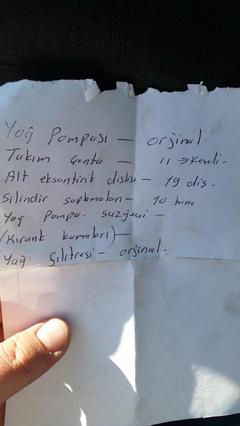 Yağ Pompası — orjinal.
Takım Conta — 11
Alt eksantirik dişlisi — 19 diş.
Silindir saplamaları — 10 tane
Yağ Pompa. süzgeci —
(Kırank kamaları) —
Yağ filitresi — orjinal.